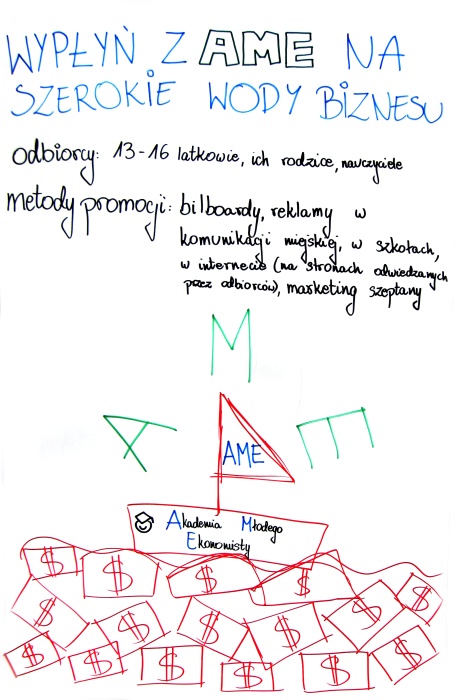 WYPŁYŃ Z AME NA
SZEROKIE WODY BIZNESU
odbiorcy: 13-16 latkowie, ich rodzice, nauczyciele
metody promocji: bilboardy, reklamy w
komunikacji miejskiej, w szkołach,
w internecie (na stronach odwiedzanych
przez odbiorców), marketing szeptany
M
A
E
AME
Akademia Młodego
Ekonomisty
$ $ $ $
$ $ $ $ $ $
$ $ $ $ $ $